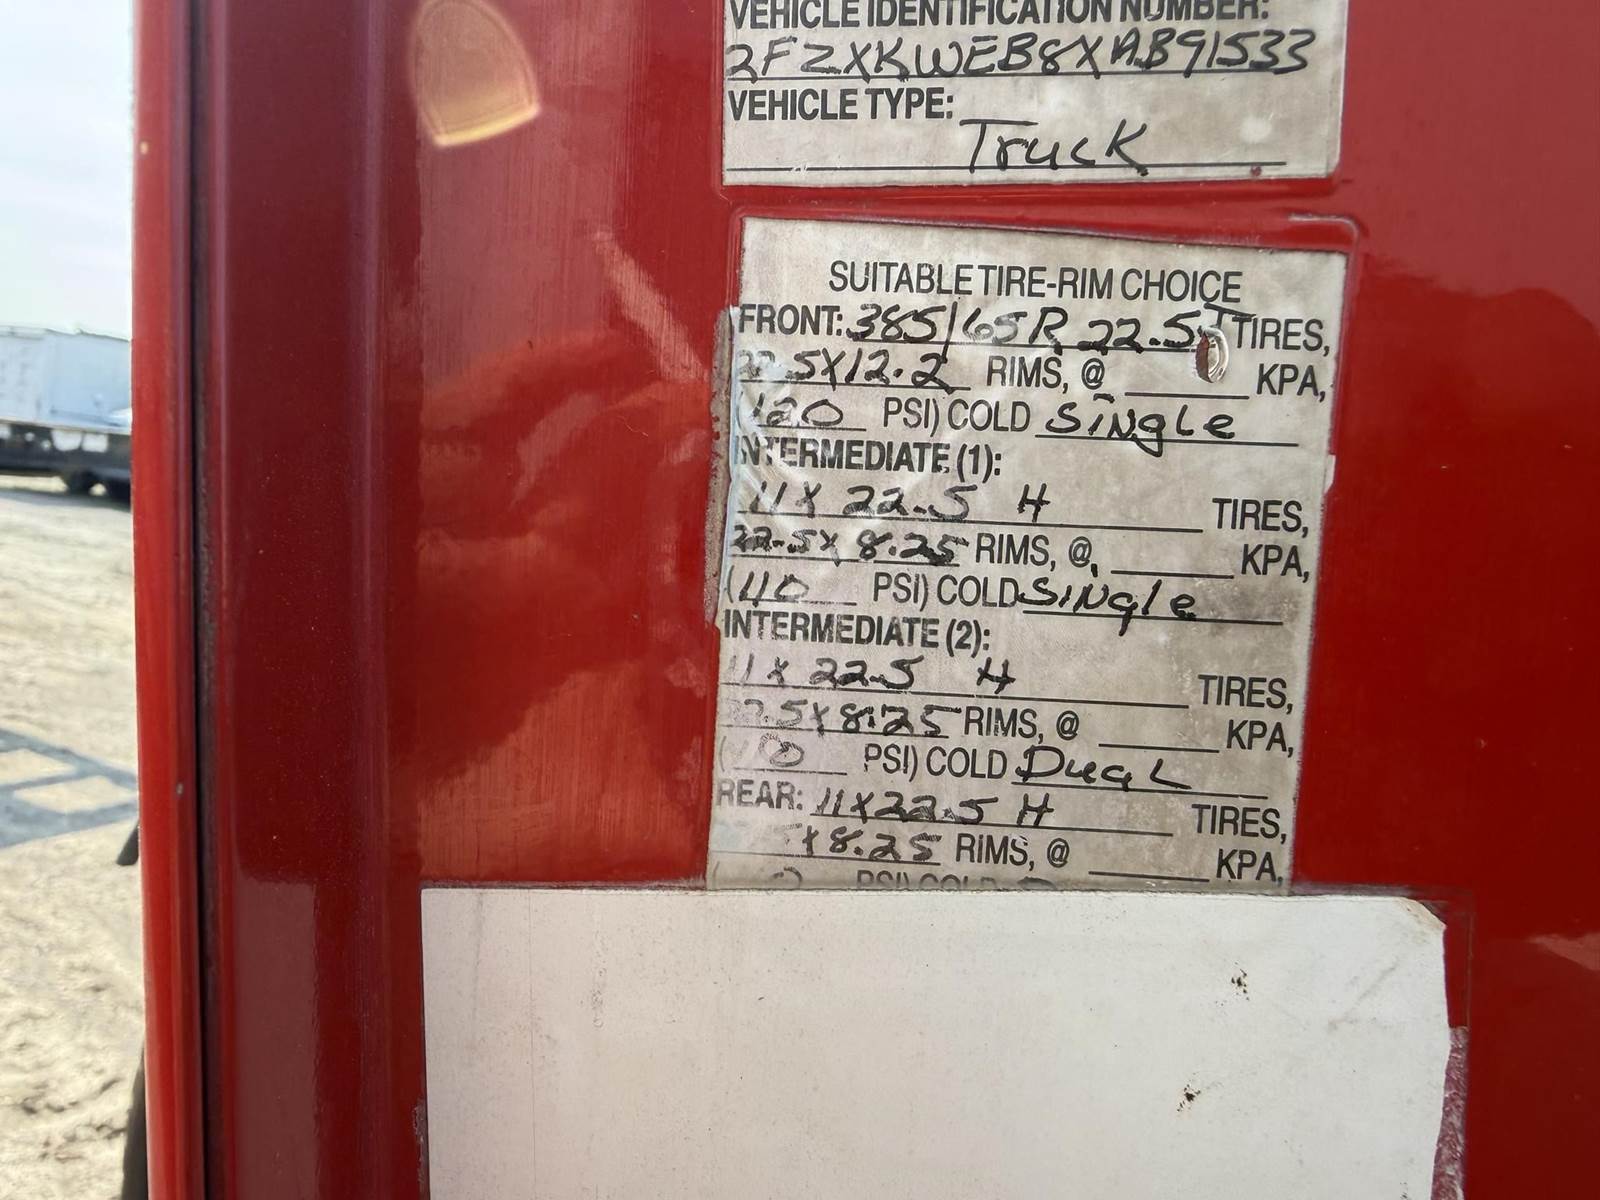 VEHICLE IDENTIFICATION NUMBER:
2FZXKWEB8XAB91533
VEHICLE TYPE:
Truck
SUITABLE TIRE-RIM CHOICE
FRONT: 385/65R 22.5J TIRES,
22.5X12.2 RIMS, @ ______ KPA,
(120 PSI) COLD Single
INTERMEDIATE (1):
11X 22.5 H TIRES,
22.5X 8.25 RIMS, @ ______ KPA,
(110 PSI) COLD Single
INTERMEDIATE (2):
11X 22.5 H TIRES,
22.5X8.25 RIMS, @ ______ KPA,
(110 PSI) COLD DuaL
REAR: 11X22.5 H TIRES,
X8.25 RIMS, @ ______ KPA,
PSI) COLD